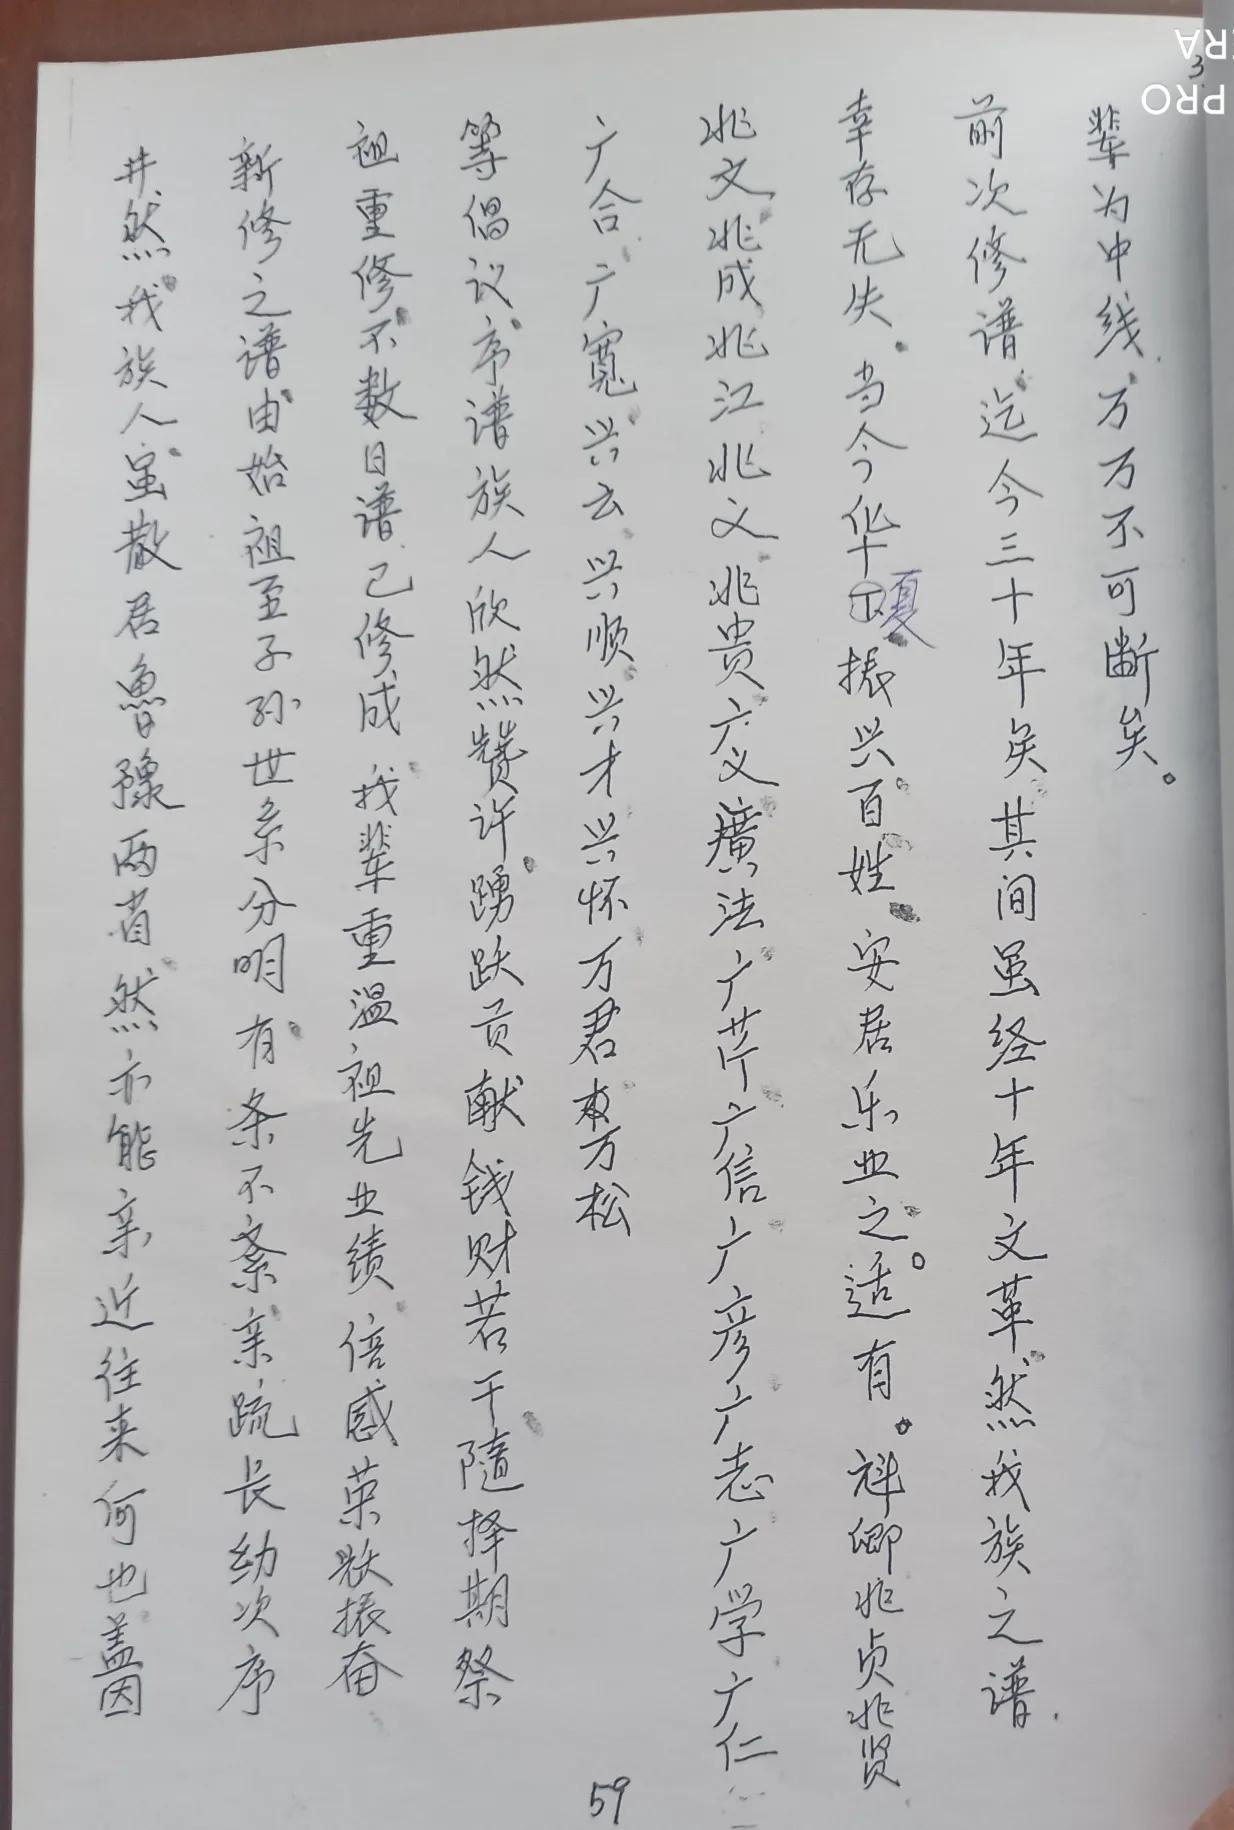 3
辈为中线万万不可断矣。
前次修谱迄今三十年矣其间虽经十年文革然我族之谱
幸存无失。当今华夏振兴百姓安居乐业之。适有。科卿兆贞兆贤
兆文兆成兆江兆义兆贵广义广法广芹广信广彦广志广学广仁
广合广寬兴云兴顺兴才兴怀万君万松
等倡议序谱族人欣然赞许踴跃贡献钱财若干隨择期祭
祖重修不数日谱已修成我辈重温祖先业绩倍感荣耀振奋
新修之谱由始祖至子孙世系分明有条不紊亲疏长幼次序
井然我族人虽散居鲁豫两省然亦能亲近往来何也盖因
59
PRO